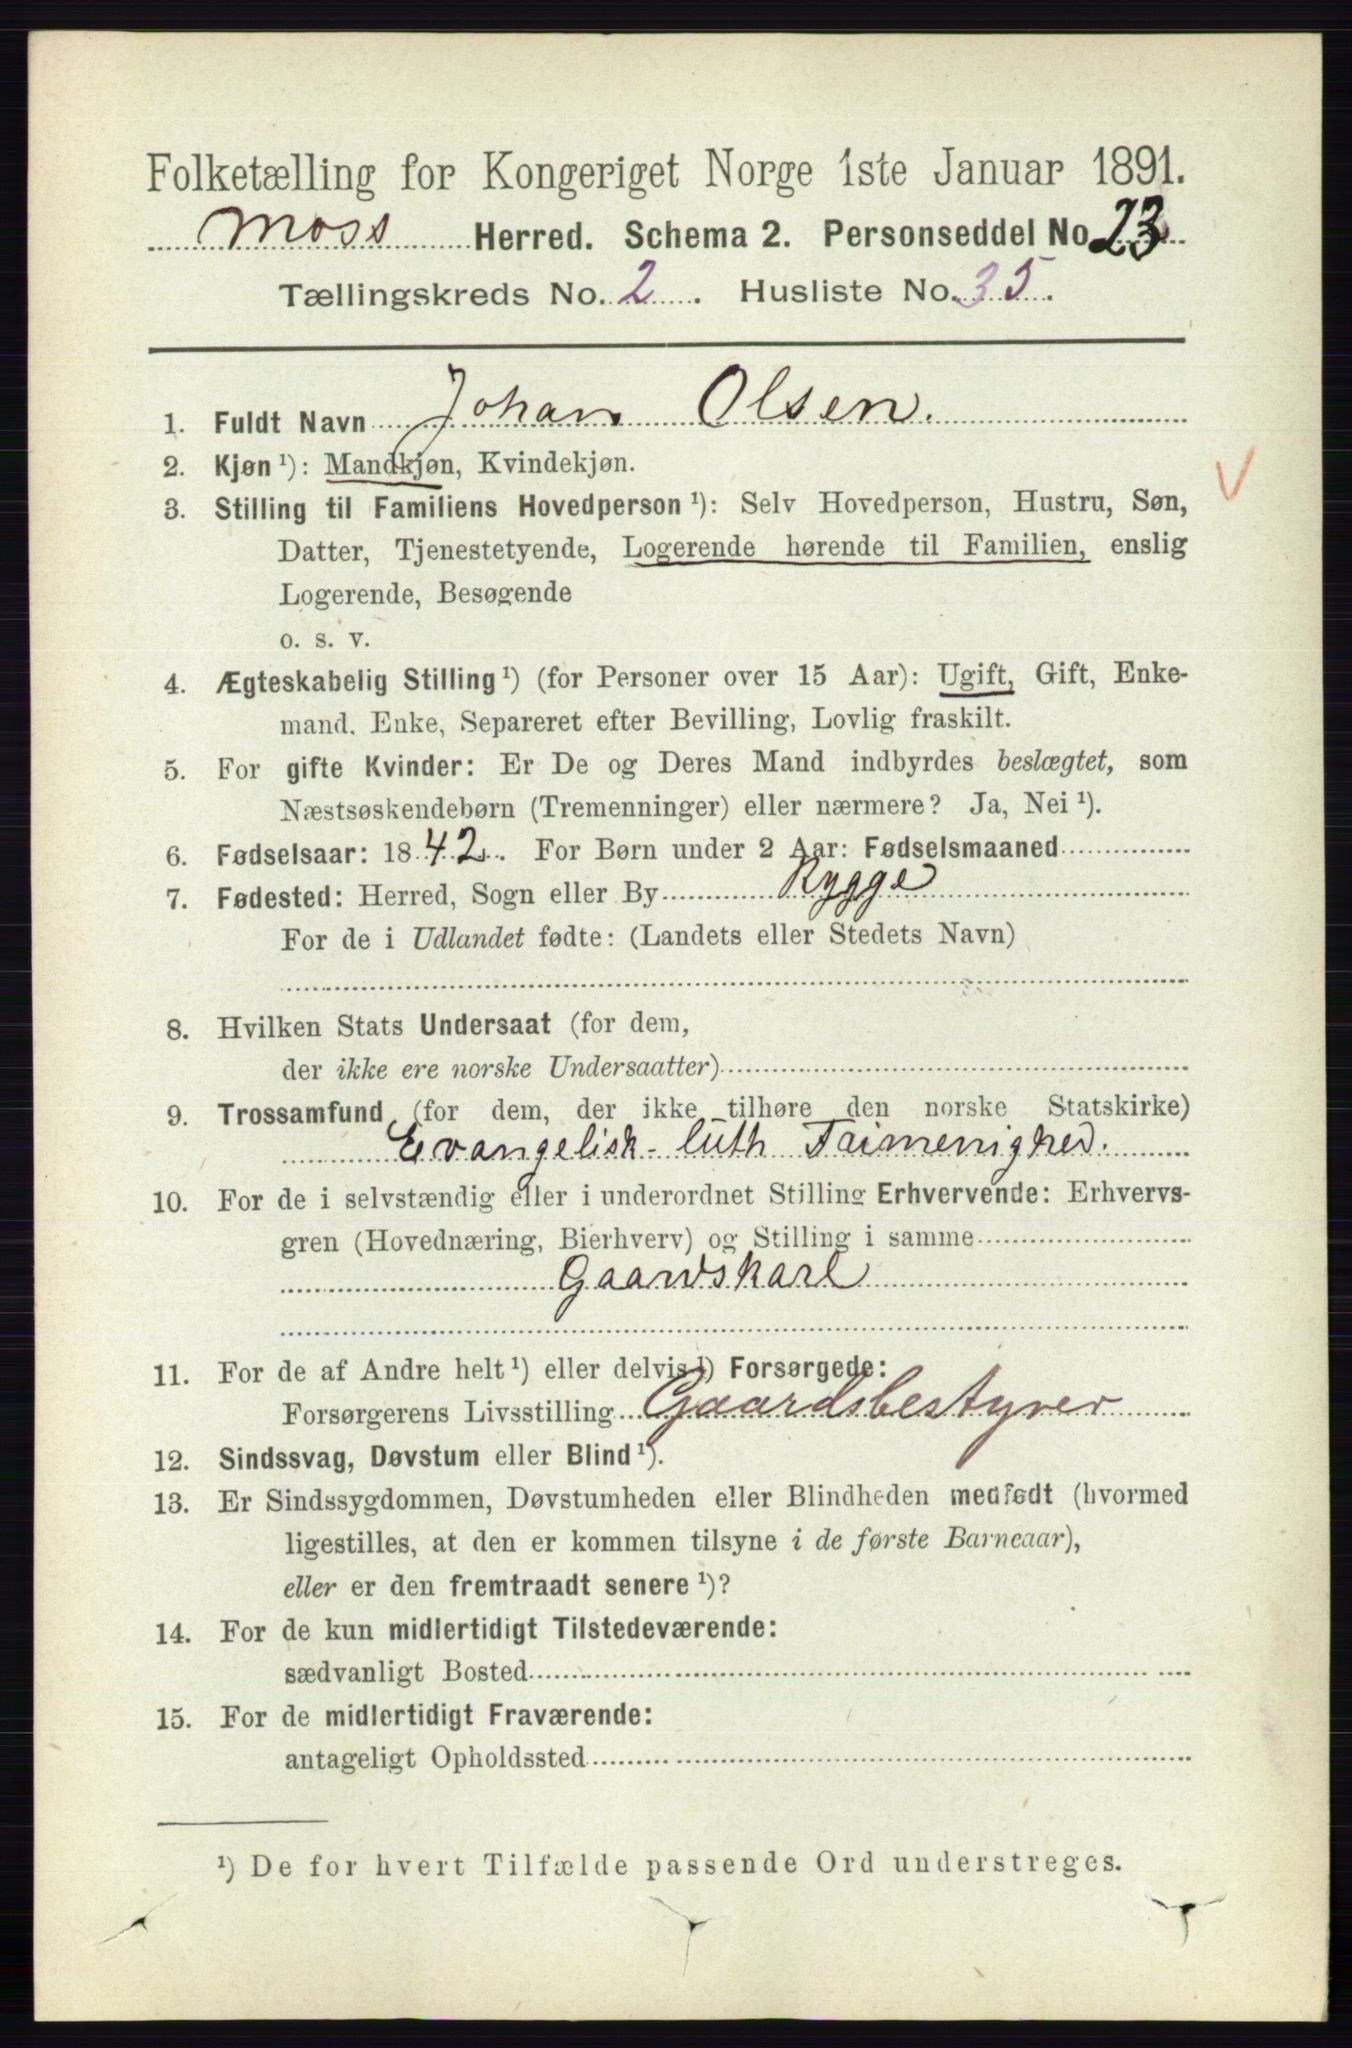 Folketælling for Kongeriget Norge 1ste Januar 1891.
Moss Herred. Schema 2. Personseddel No 23
Tællingskreds No. 2. Husliste No. 35.
1. Fuldt Navn Johan Olsen.
2. Kjøn ¹): Mandkjøn, Kvindekjøn.
3. Stilling til Familiens Hovedperson ¹): Selv Hovedperson, Hustru, Søn,
Datter, Tjenestetyende, Logerende hørende til Familien, enslig
Logerende, Besøgende
o. s. v.
4. Ægteskabelig Stilling ¹) (for Personer over 15 Aar): Ugift, Gift, Enke-
mand, Enke, Separeret efter Bevilling, Lovlig fraskilt.
5. For gifte Kvinder: Er De og Deres Mand indbyrdes beslægtet, som
Næstsøskendebørn (Tremenninger) eller nærmere? Ja, Nei ¹).
6. Fødselsaar: 1842. For Børn under 2 Aar: Fødselsmaaned
7. Fødested: Herred, Sogn eller By Rygge
For de i Udlandet fødte: (Landets eller Stedets Navn)
8. Hvilken Stats Undersaat (for dem,
der ikke ere norske Undersaatter)
9. Trossamfund (for dem, der ikke tilhøre den norske Statskirke)
Evangelisk-luth Frimenighed.
10. For de i selvstændig eller i underordnet Stilling Erhvervende: Erhvervs-
gren (Hovednæring, Bierhverv) og Stilling i samme
Gaardskarl
11. For de af Andre helt ¹) eller delvis ¹) Forsørgede:
Forsørgerens Livsstilling Gaardsbestyrer
12. Sindssvag, Døvstum eller Blind ¹).
13. Er Sindssygdommen, Døvstumheden eller Blindheden medfødt (hvormed
ligestilles, at den er kommen tilsyne i de første Barneaar),
eller er den fremtraadt senere ¹)?
14. For de kun midlertidigt Tilstedeværende:
sædvanligt Bosted
15. For de midlertidigt Fraværende:
antageligt Opholdssted
¹) De for hvert Tilfælde passende Ord understreges.